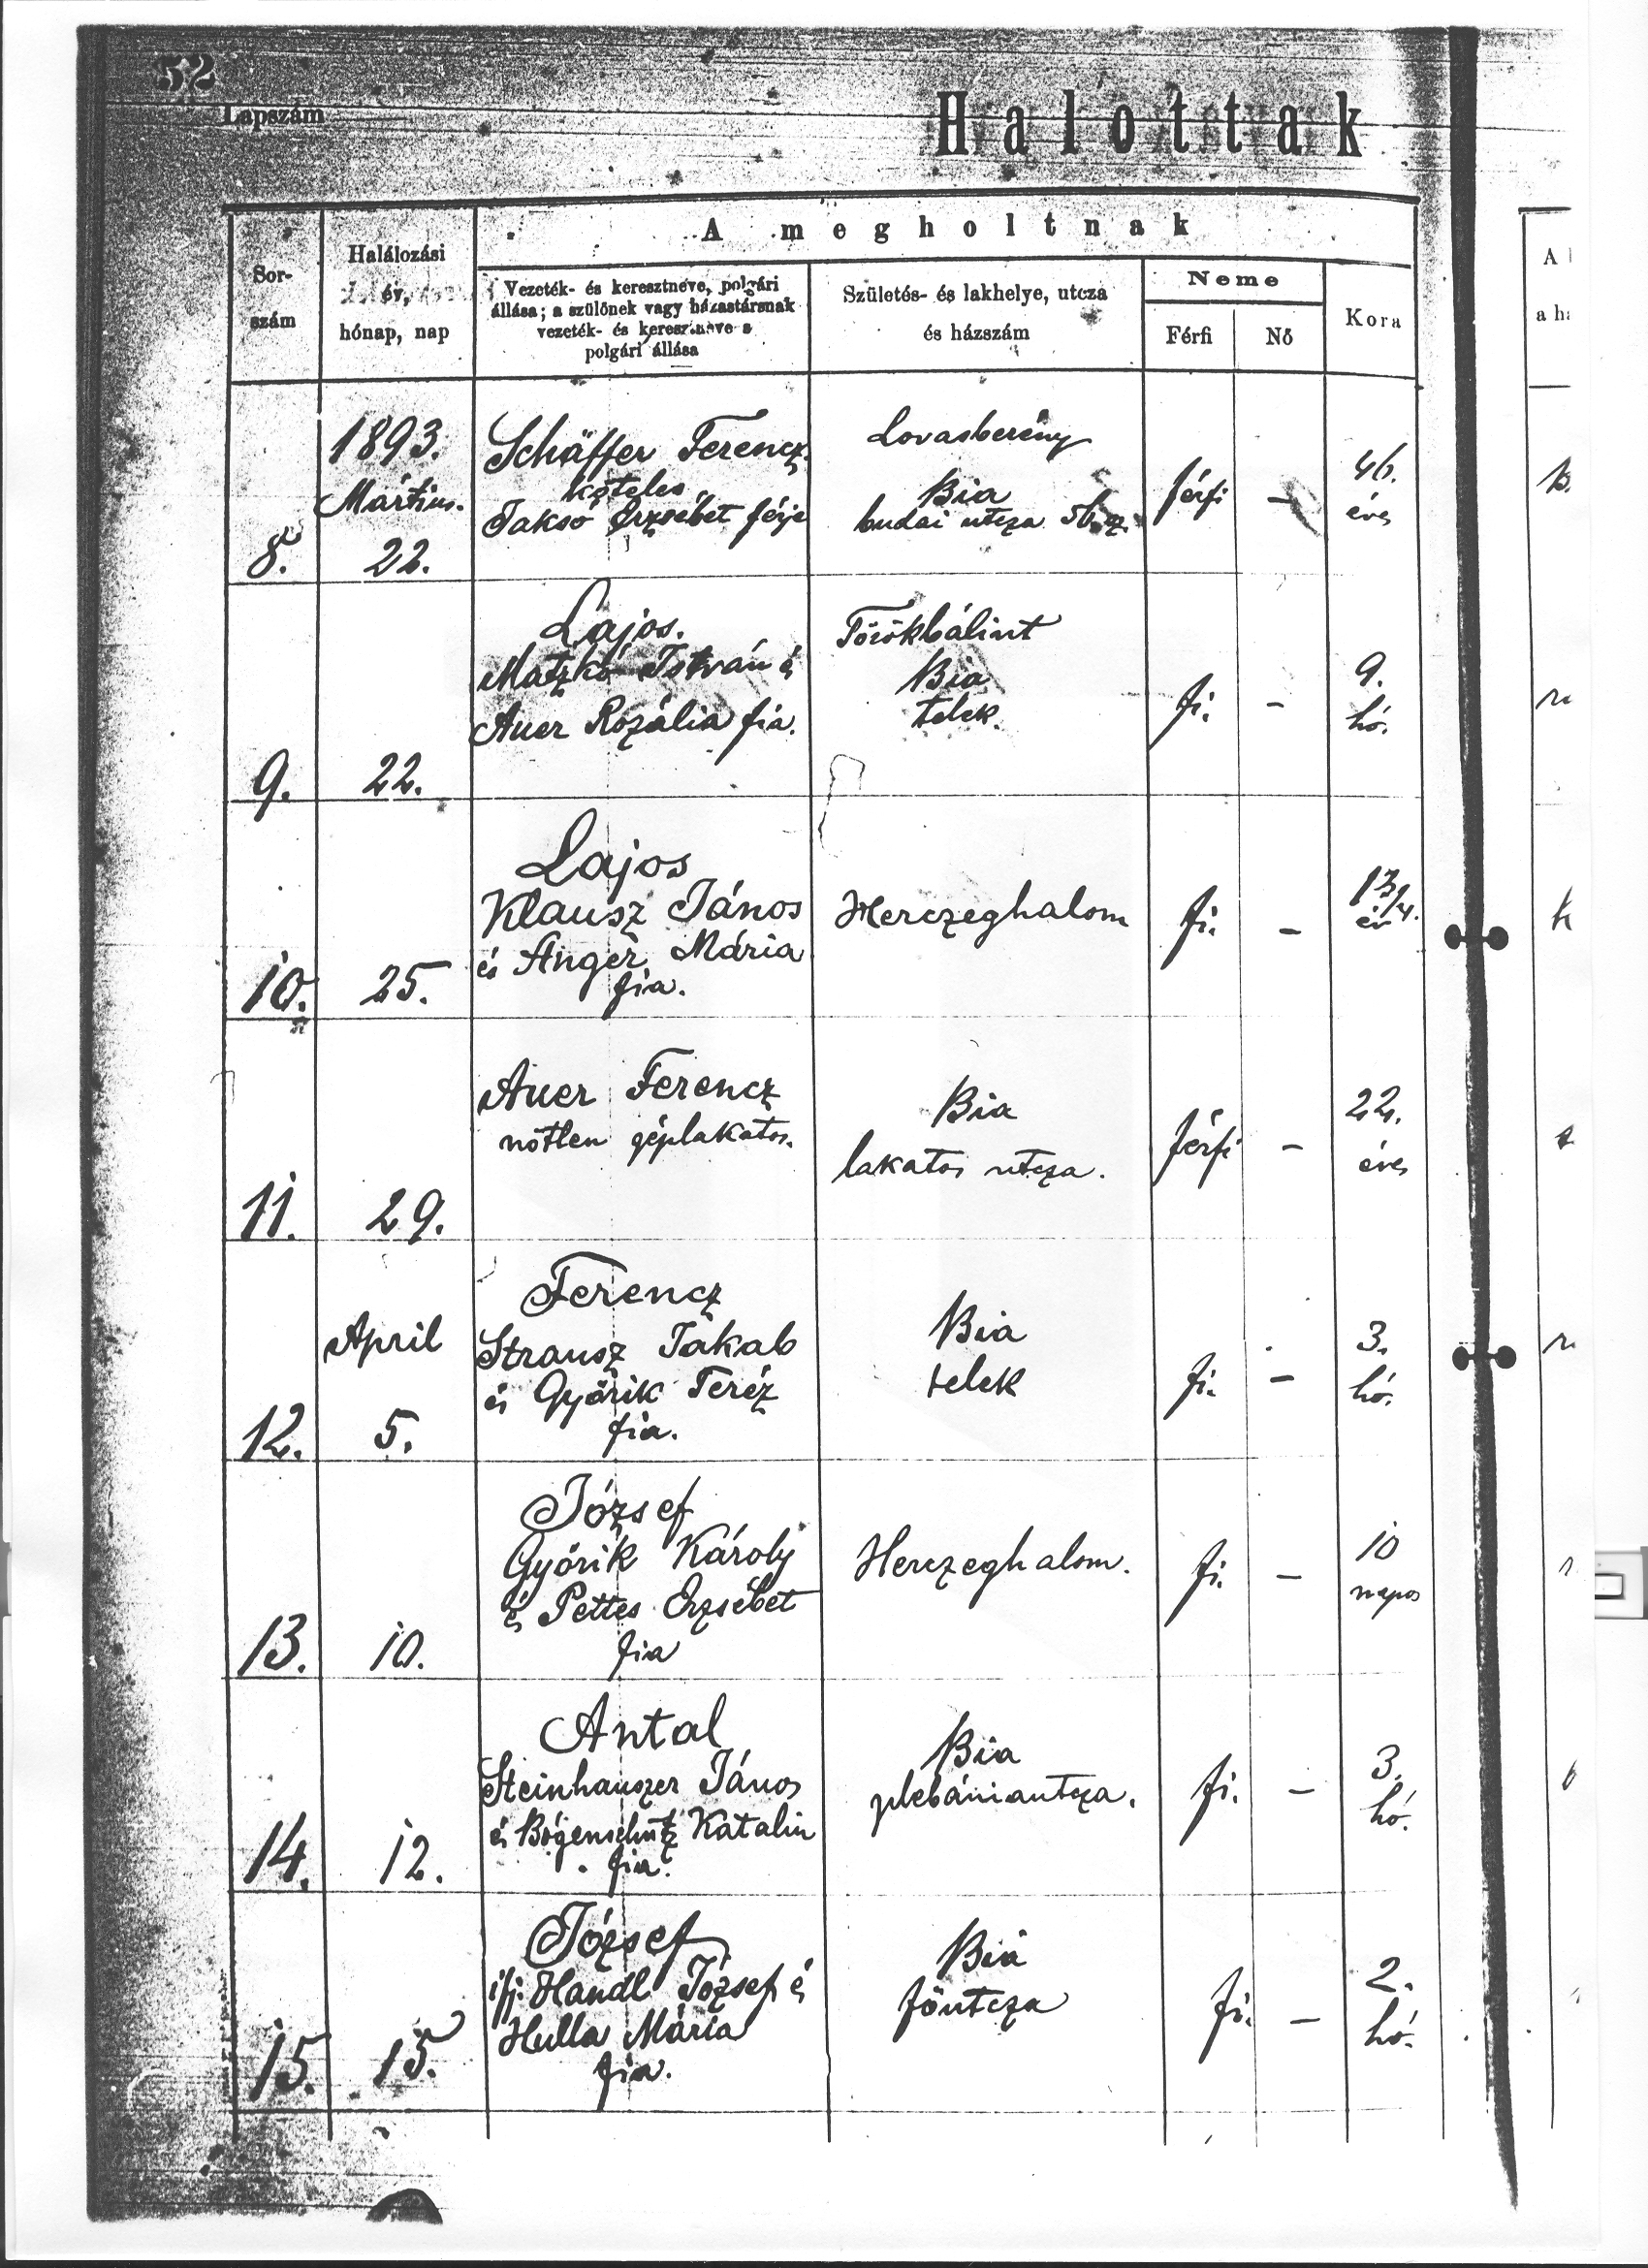 52
Lapszám
Halottak
A megholtnak
Sor-
szám
Halálozási
év,
hónap, nap
Vezeték- és keresztneve, polgári
állása; a szülőnek vagy házastársnak
vezeték- és keresztneve s
polgári állása
Születés- és lakhelye, utcza
és házszám
Neme
Férfi
Nő
Kora
A
a há
8.
1893.
Mártius.
22.
Schäffer Ferencz
köteles
Jakso Erzsébet férje
Lovasberény
Bia
budai utcza
férfi
–
46.
éves
9.
22.
Lajos.
Matzkó István és
Auer Rozália fia.
Törökbálint
Bia
telek.
fi.
–
9.
hó.
10.
25.
Lajos
Klausz János
és Anger Mária
fia.
Herczeghalom
fi.
–
1 3/4.
év
11.
29.
Auer Ferencz
nőtlen géplakatos.
Bia
lakatos utcza.
férfi
–
22.
éves
12.
April
5.
Ferencz
Strausz Jakab
és Györik Teréz
fia.
Bia
telek
fi.
–
3.
hó.
13.
10.
József
Györik Károly
és Pettes Erzsébet
fia
Herczeghalom.
fi.
–
10
napos
14.
12.
Antal
Steinhauszer János
és Bögenschütz Katalin
fia.
Bia
plebániautcza.
fi.
–
3.
hó.
15.
15.
József
ifj. Handl József és
Hulla Mária
fia.
Bia
főutcza
fi.
–
2.
hó.